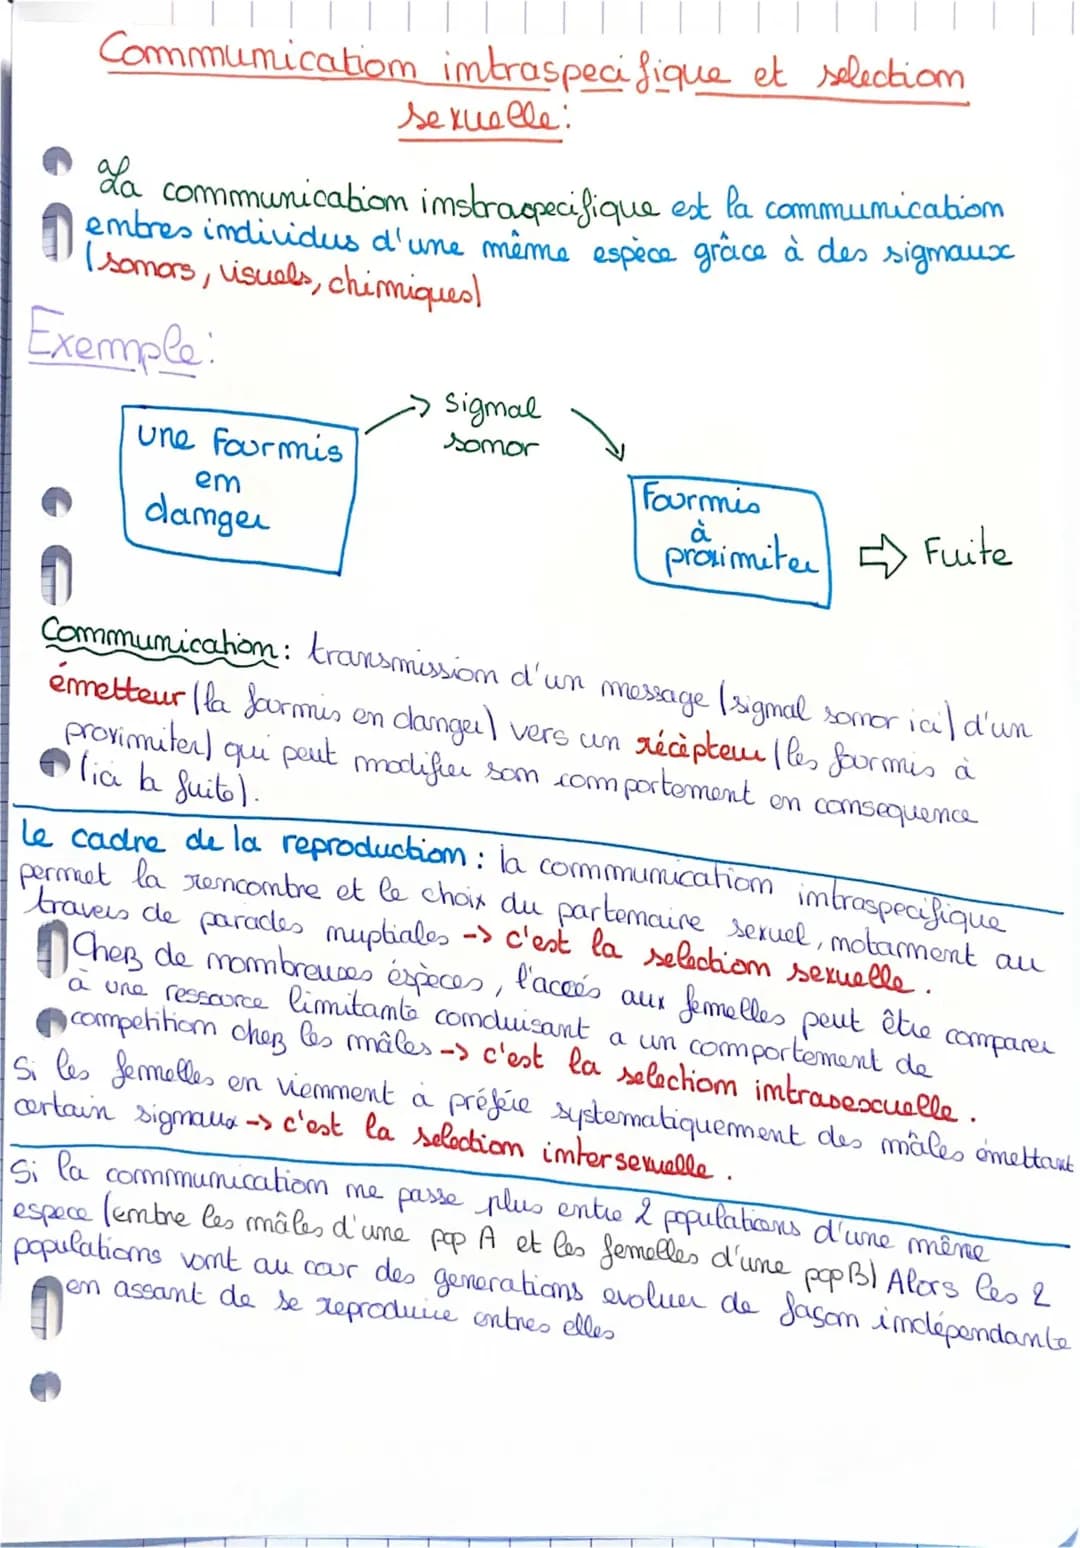 Communication intraspecifique et selection
sexuelle:
La communication instraspecifique est la communication
entres individus d'une même espèce grâce à des signaux
(sonors, visuels, chimiques)
Exemple:
une Fourmis
en
danger
→ Signal
sonor
Fourmis
à
proximiter
⇒ Fuite
Communication: transmission d'un message (signal sonor ici) d'un
émetteur (la fourmis en danger) vers un récèpteur (les fourmis à
proximiter) qui peut modifier son comportement en consequence
(ici la fuite).
Le cadre de la reproduction: la communication intraspecifique
permet la rencontre et le choix du partenaire sexuel, notamment au
travers de parades nuptiales -> c'est la selection sexuelle.
Chez de nombreuses éspèces, l'accés aux femelles peut être comparer
à une ressource limitante conduisant a un comportement de
competition chez les mâles -> c'est la selection intrasexcuelle.
Si les femelles en viennent à préférer systematiquement des mâles émettant
certain signaux -> c'est la selection intersexuelle.
Si la communication ne passe plus entre 2 populations d'une même
espece (entre les mâles d'une pop A et les femelles d'une pop B) Alors les 2
populations vont au cour des generations evoluer de façon indépendante
en assant de se reproduire entres elles